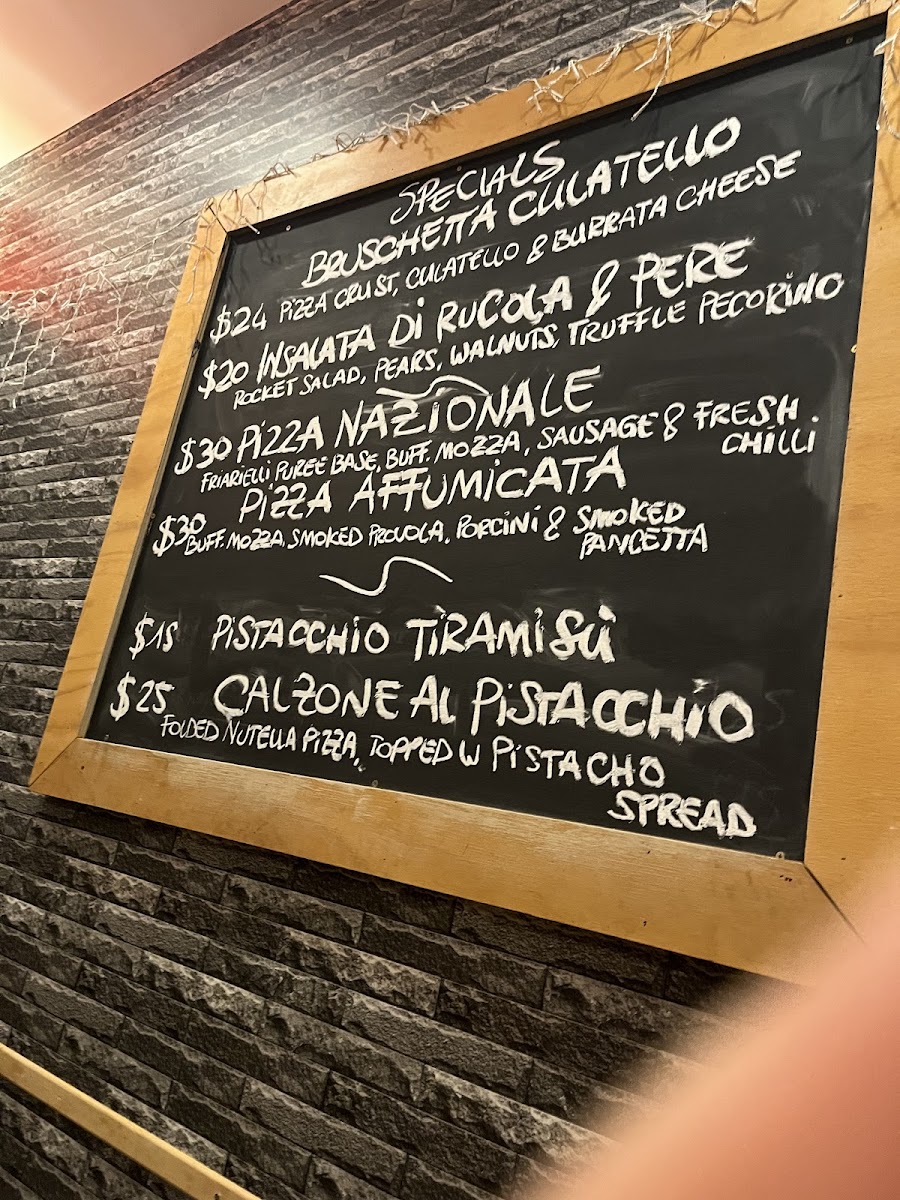 SPECIALS
BRUSCHETTA CULATELLO
$24 PIZZA CRUST, CULATELLO & BURRATA CHEESE
$20 INSALATA DI RUCOLA & PERE
ROCKET SALAD, PEARS, WALNUTS, TRUFFLE PECORINO
$30 PIZZA NAZIONALE
FRIARIELLI PUREE BASE, BUFF. MOZZA, SAUSAGE & FRESH
CHILLI
PIZZA AFFUMICATA
$30 BUFF. MOZZA, SMOKED PROVOLA, PORCINI & SMOKED
PANCETTA
$15 PISTACCHIO TIRAMISÙ
$25 CALZONE AL PISTACCHIO
FOLDED NUTELLA PIZZA, TOPPED W PISTACHO
SPREAD